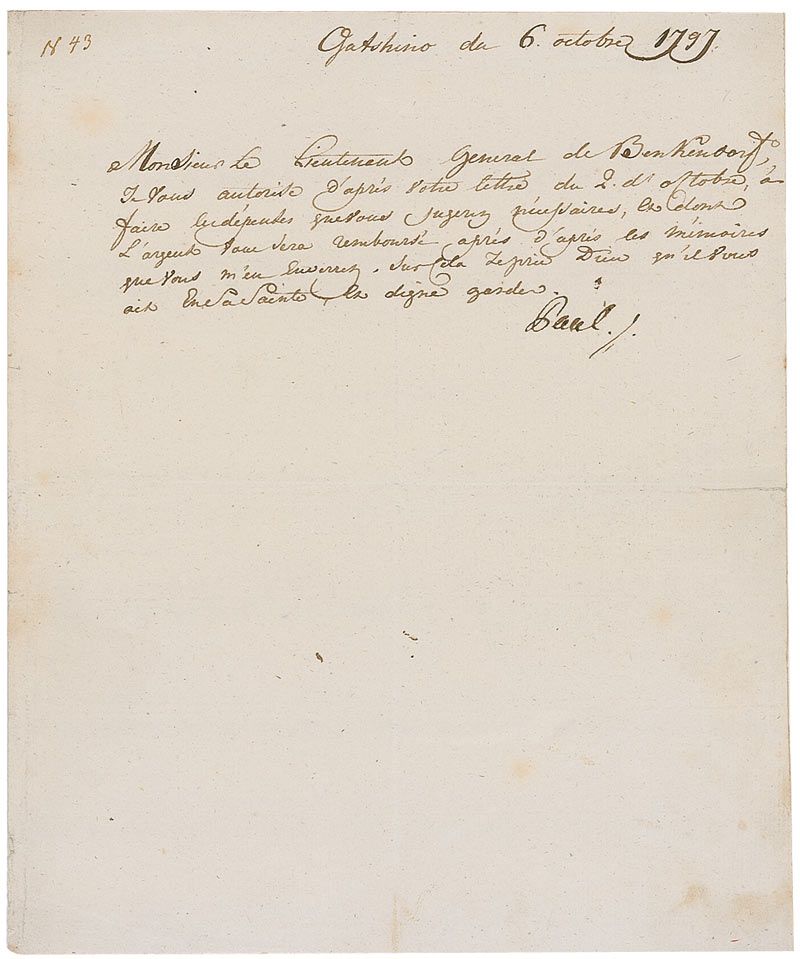 N 43
Gatshino du 6. octobre 1797.
Monsieur le Lieutenant General de Benkendorff,
Je Vous autorise d'après Votre lettre du 2. d'octobre, à
faire les depenses que vous jugerez nécessaires, et dont
L'argent Vous sera remboursé après d'après les mémoires
que Vous m'en Enverrez. Sur Cela Je prie Dieu qu'il Vous
ait En Sa Sainte et digne garde.
Paul.